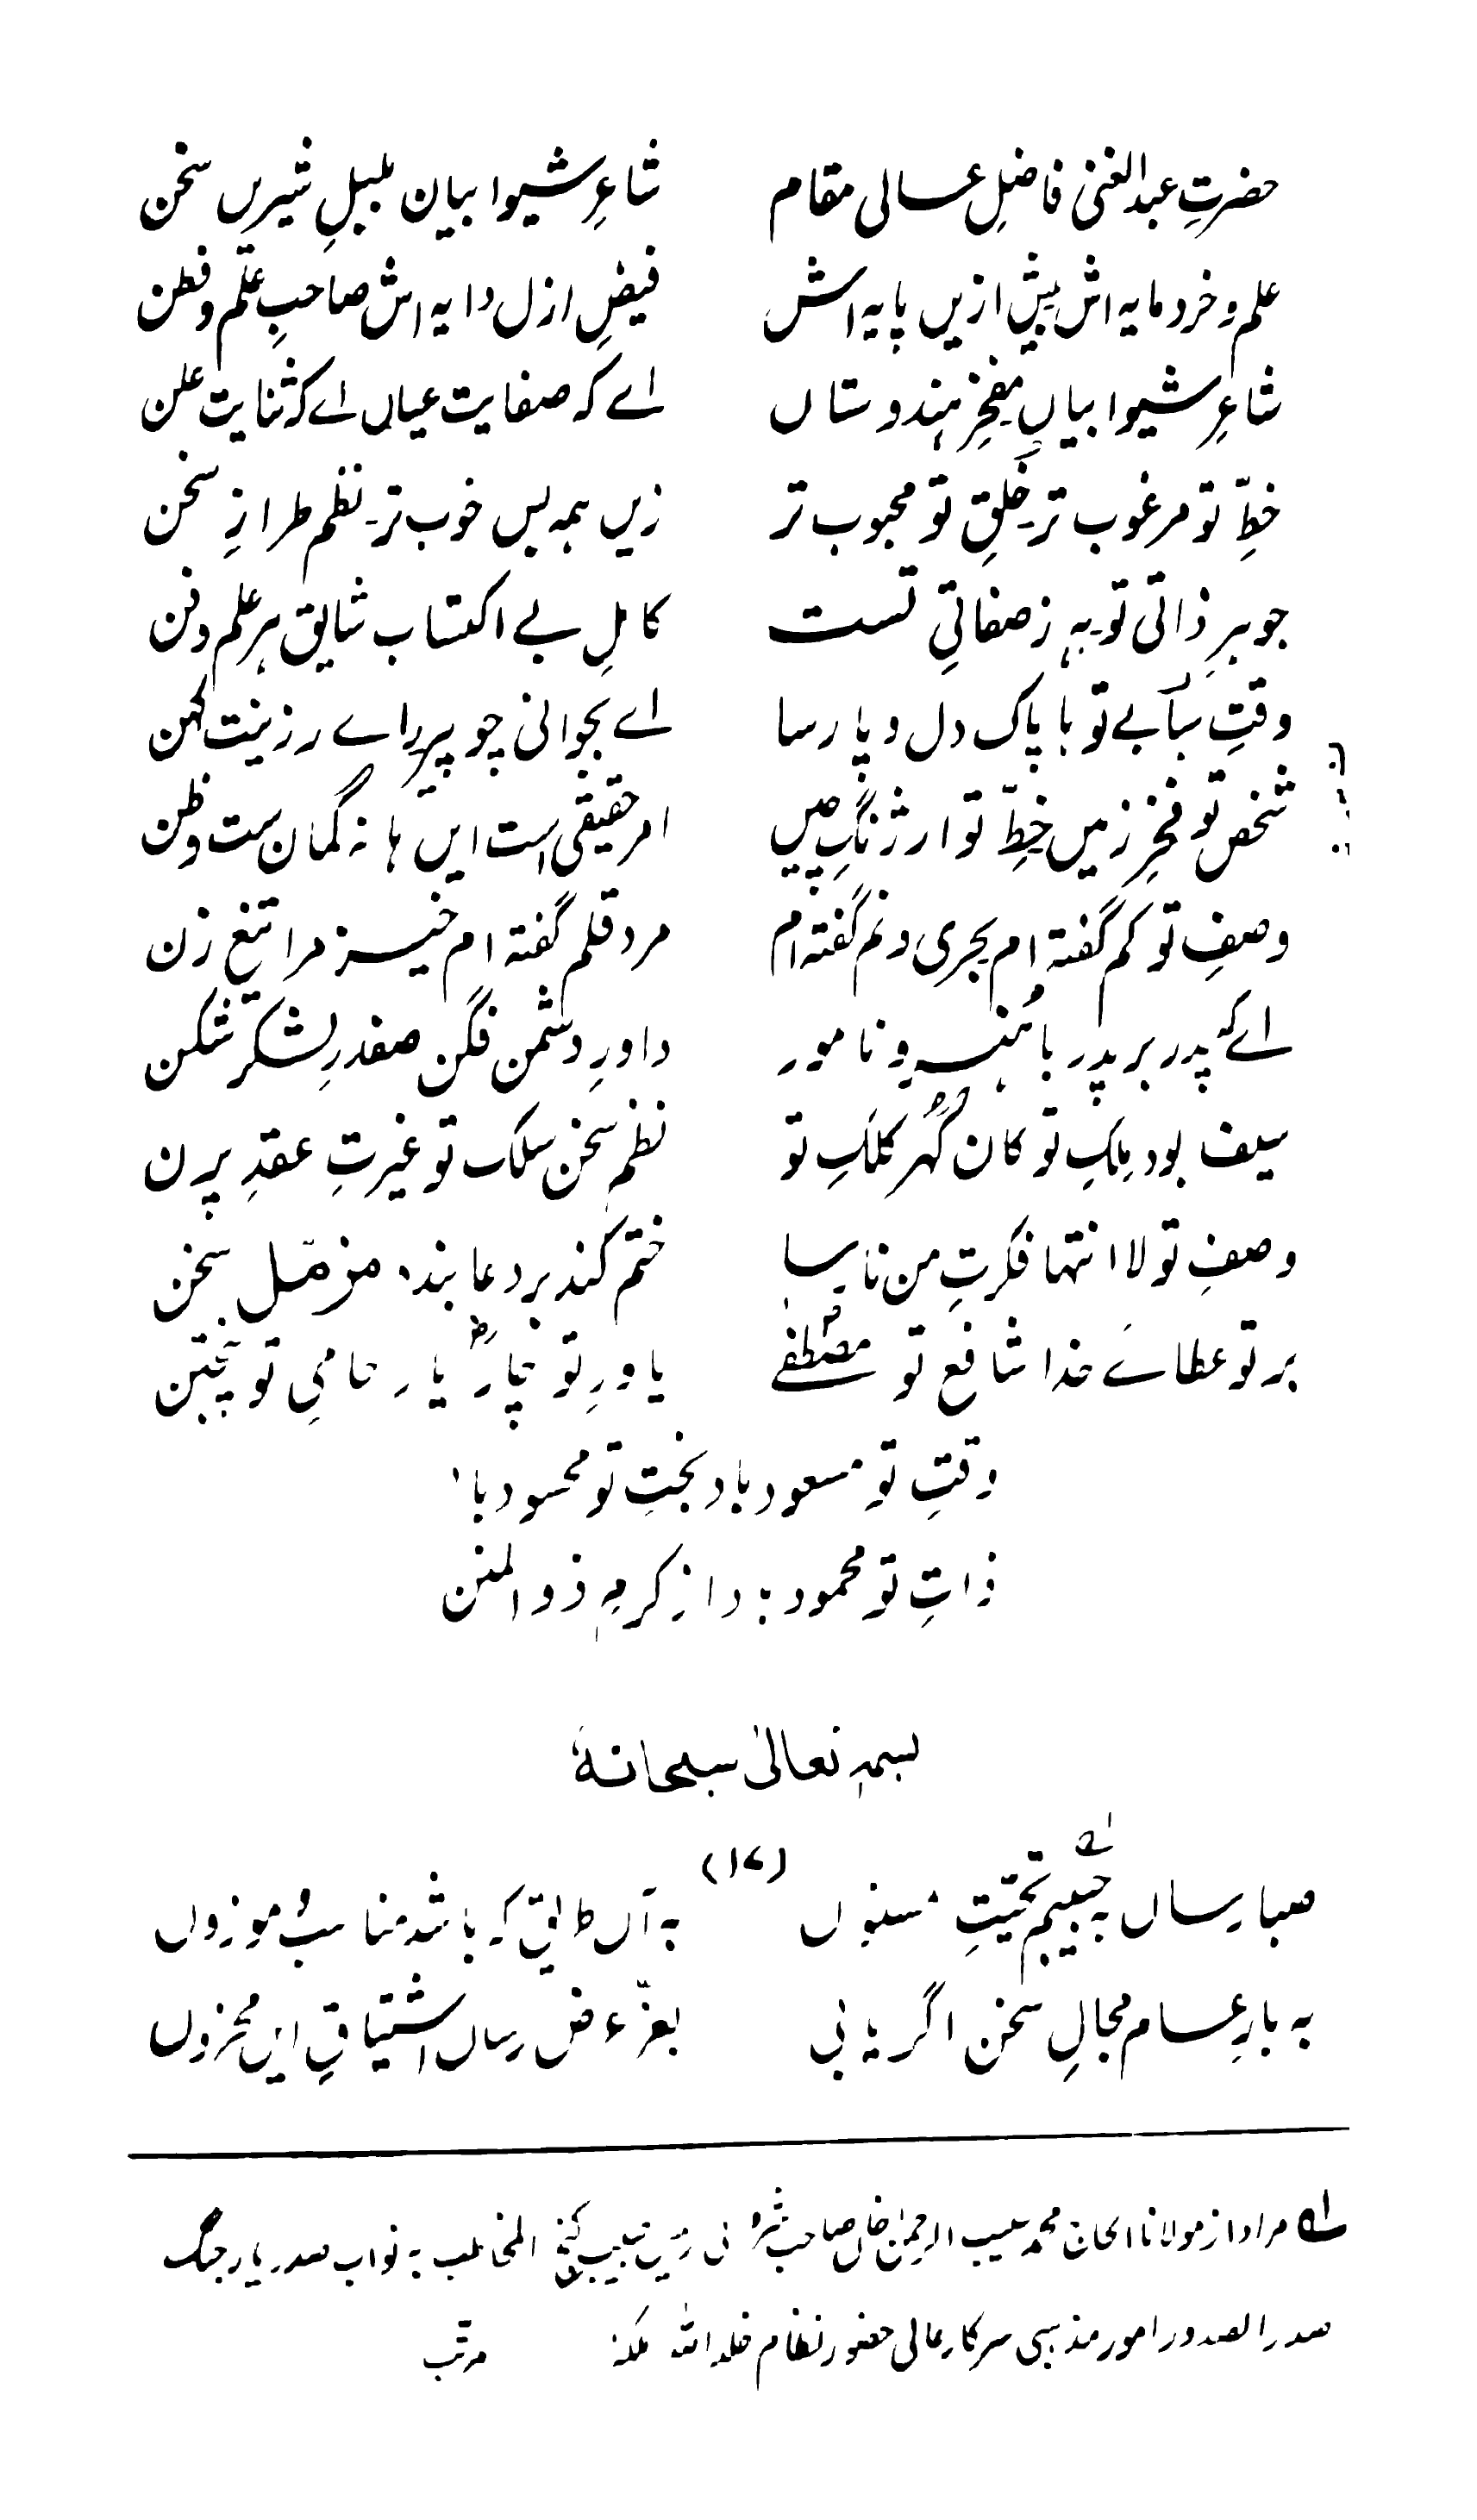 حضرتِ عبدالغنی فاضلِ عالی مقام شاعرِ شیوا بیان بلبلِ شیریں سخن
علم و خرد مایہ اش بیش ازیں پایہ اش فیضِ ازل دایہ اش صاحبِ علم و فطن
شاعرِ شیوا بیاں مفخرِ ہندوستاں اے کہ صفایت عیاں اے کہ ثنایت علن
خطِّ تو مرغوب تر خلقِ تو محبوب تر زیں ہمہ بس خوب تر نظم طرازِ سخن
جوہرِ ذاتی تو بہ ز صفاتِی تست کاملِ بے اکتساب شایقِ ہر علم و فن
وقتِ شبابے تو با پاک دل و پارسا اے بجوانی چو پیر راے رزینت کہن
شخصِ تو فخرِ زمیں خطِّ تو ارژنگِ چیں امرِ حقیقی است ایں ہا نہ گمان ست و ظن
وصفِ تو کم گفتہ ام بحری و نم گفتہ ام مردِ قلم گفتہ ام خیز مرا تیغ زن
اے کہ پدر بر پدر با ہنر و نامور داورِ دشمن فگن صفدرِ لشکر شکن
سیف بود بلکِ تو کان گہر کلکِ تو نظمِ سخن سلک تو غیرتِ عقدِ پرن
وصفِ تو لا انتہا فکرتِ من نارسا ختم کند بر دعا بندہ مزمّل سخن
بر تو عطاے خدا شافع تو مصطفےٰ یاورِ تو چار یار حامیِ تو پنجتن
وقتِ تو مسعود باد بختِ تو محسود با
ذاتِ تو محمود باد از کرمِ ذوالمنن
بسمہٖ تعالیٰ سبحانہٗ
(۱۷)
صبا رساں بہ حبیبم تحیّتِ مسنوں بہ آں طریق کہ باشد مناسب و موزوں
بہ بارِ عام مجالِ سخن اگر یابی بعزّ عرض رساں اشتیاقِ ایں محزوں
لہ مراد از مولانا الحاج محمد حبیب الرحمٰن خاں صاحب شروانی رئیس حبیب گنج المخاطب بہ نواب صدر یار جنگ
صدر الصدور امور مذہبی سرکار عالی حضور نظام خلد اللہ ملکہٗ مرتّب